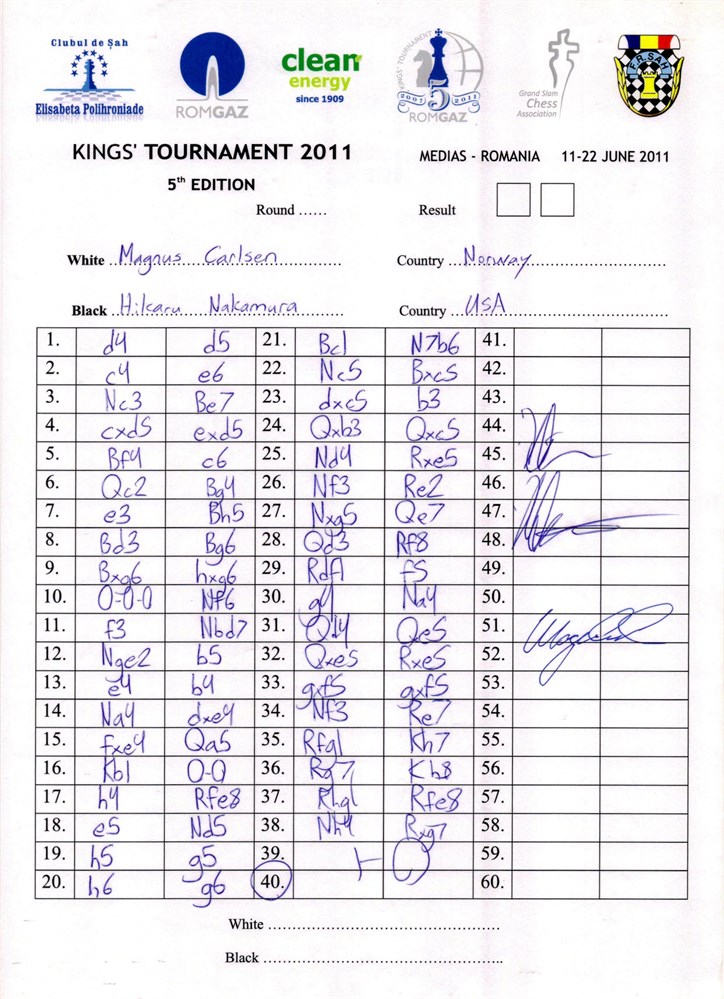 Clubul de Şah
Elisabeta Polihroniade
ROMGAZ
clean
energy
since 1909
KINGS' TOURNAMENT
2007 2011
5
ROMGAZ
Grand Slam
Chess
Association
F.R.SAH
KINGS' TOURNAMENT 2011
MEDIAS - ROMANIA 11-22 JUNE 2011
5th EDITION
Round ......
Result
White Magnus Carlsen Country Norway
Black Hikaru Nakamura Country USA
1. d4 d5 21. Bc1 N7b6 41.
2. c4 e6 22. Nc5 Bxc5 42.
3. Nc3 Be7 23. dxc5 b3 43.
4. cxd5 exd5 24. Qxb3 Qxc5 44.
5. Bf4 c6 25. Nd4 Rxe5 45.
6. Qc2 Bg4 26. Nf3 Re2 46.
7. e3 Bh5 27. Nxg5 Qe7 47.
8. Bd3 Bg6 28. Qd3 Rf8 48.
9. Bxg6 hxg6 29. Rdf1 f5 49.
10. 0-0-0 Nf6 30. g4 Na4 50.
11. f3 Nbd7 31. Qd4 Qe5 51.
12. Nge2 b5 32. Qxe5 Rxe5 52.
13. e4 b4 33. gxf5 gxf5 53.
14. Na4 dxe4 34. Nf3 Re7 54.
15. fxe4 Qa5 35. Rfg1 Kh7 55.
16. Kb1 0-0 36. Rg7 Kh8 56.
17. h4 Rfe8 37. Rhg1 Rfe8 57.
18. e5 Nd5 38. Nh4 Rxg7 58.
19. h5 g5 39. 1-0 59.
20. h6 g6 40. 60.
White
Black